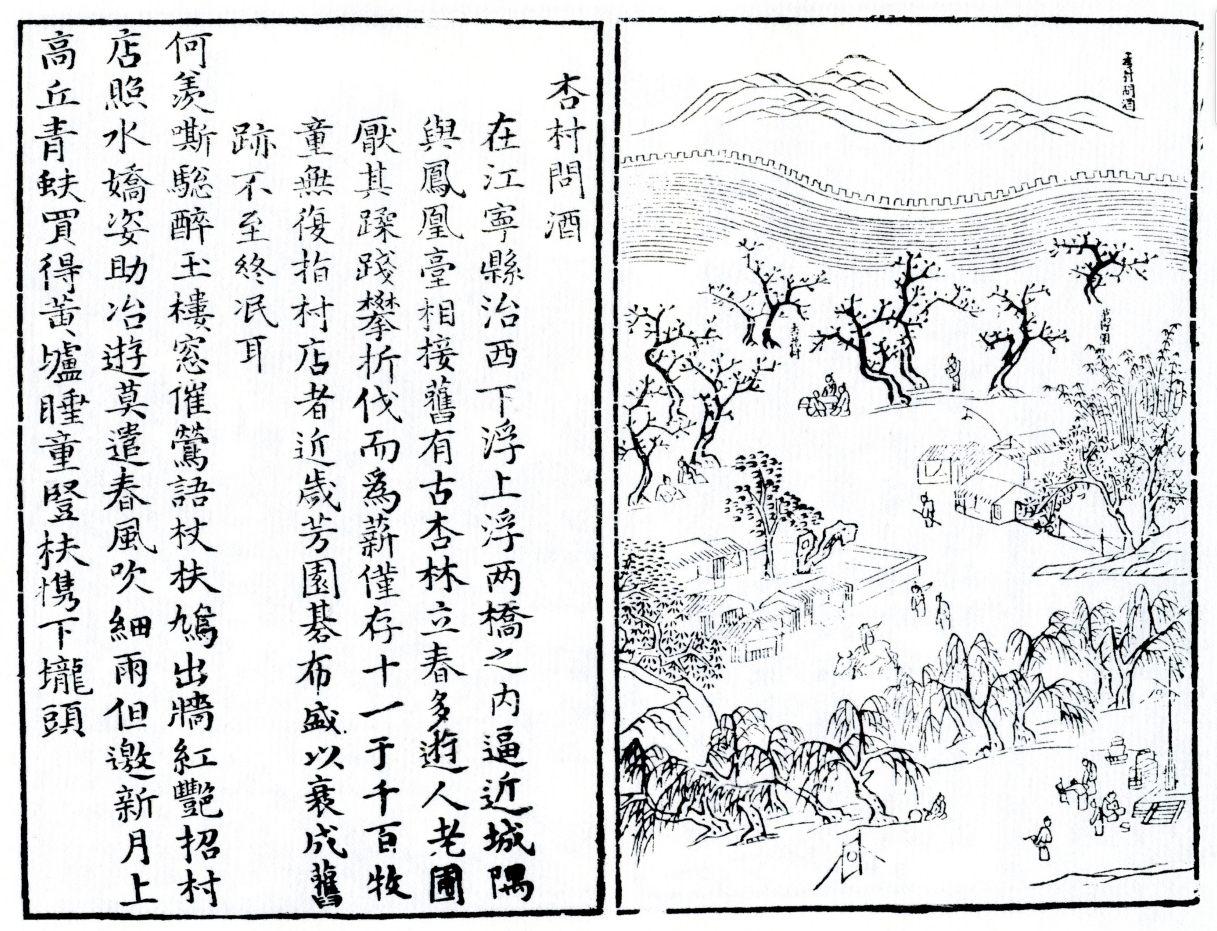 杏村問酒
萬竹園
杏花村
杏村問酒
在江寧縣治西下浮上浮两橋之内逼近城隅
與鳳凰臺相接舊有古杏林立春多遊人老圃
厭其蹂踐攀折伐而爲薪僅存十一于千百牧
童無復指村店者近歲芳園碁布盛以衰成舊
跡不至終泯耳
何羨嘶驄醉玉樓窓催鶯語杖扶鳩出牆紅艷招村
店照水嬌姿助冶遊莫遣春風吹細雨但邀新月上
高丘青蚨買得黄壚睡童豎扶携下壠頭